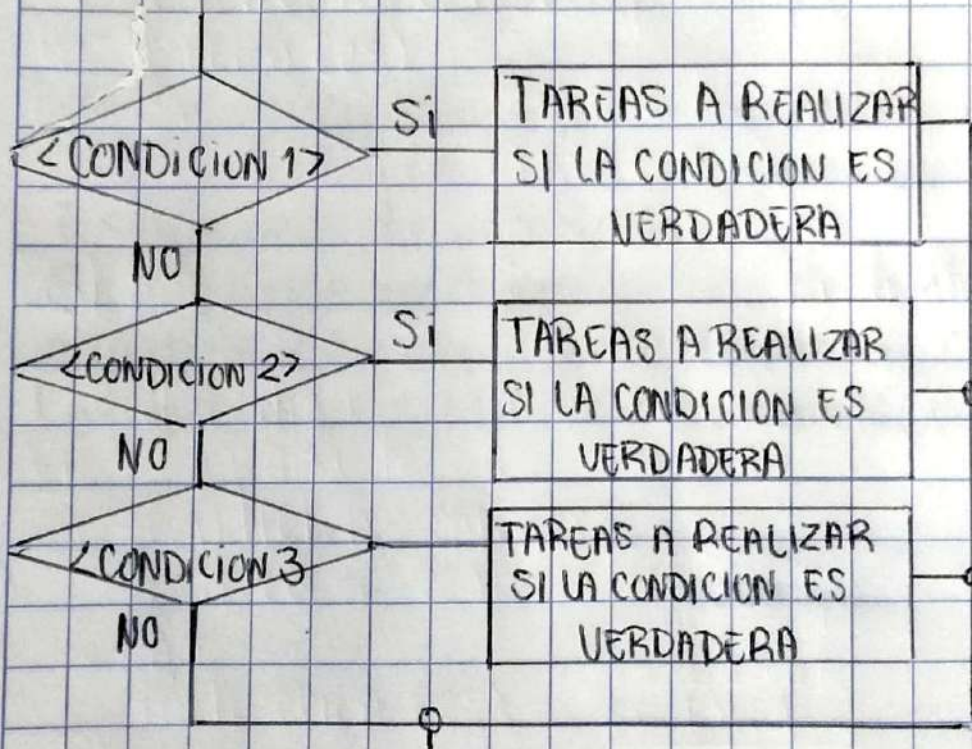 <CONDICION 1>
Si
TAREAS A REALIZAR
SI LA CONDICION ES
VERDADERA
NO
<CONDICION 2>
Si
TAREAS A REALIZAR
SI LA CONDICION ES
VERDADERA
NO
<CONDICION 3
TAREAS A REALIZAR
SI LA CONDICION ES
VERDADERA
NO